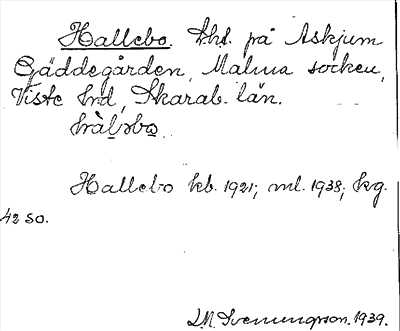 Hallebo. lht. på Askjum
Gäddegården, Malma socken,
Viste hrd, Skarab. län.
Hallebo kb. 1921; ml. 1938; kg.
42 SO.
Svenungsson. 1939.